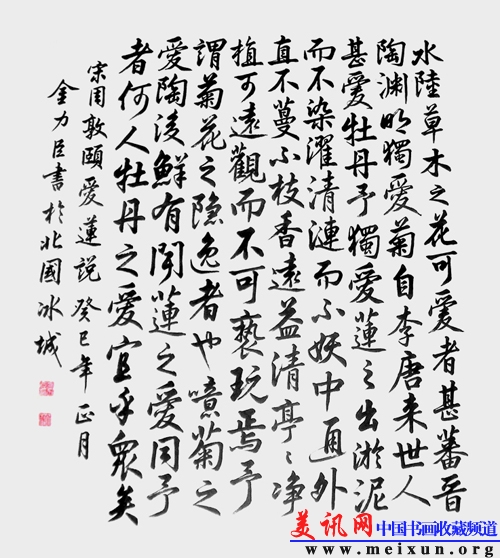 水陸草木之花可愛者甚蕃晉
陶渊明獨爱菊自李唐来世人
甚爱牡丹予獨爱蓮之出淤泥
而不染濯清漣而不妖中通外
直不蔓不枝香遠益清亭〻净
植可遠觀而不可褻玩焉予
謂菊花之隐逸者也噫菊之
愛陶後鮮有聞蓮之愛同予
者何人牡丹之愛宜乎衆矣
宋周敦頤愛蓮説癸巳年正月
金力臣書於北國冰城
美讯网 中国书画收藏频道
www.meixun.org